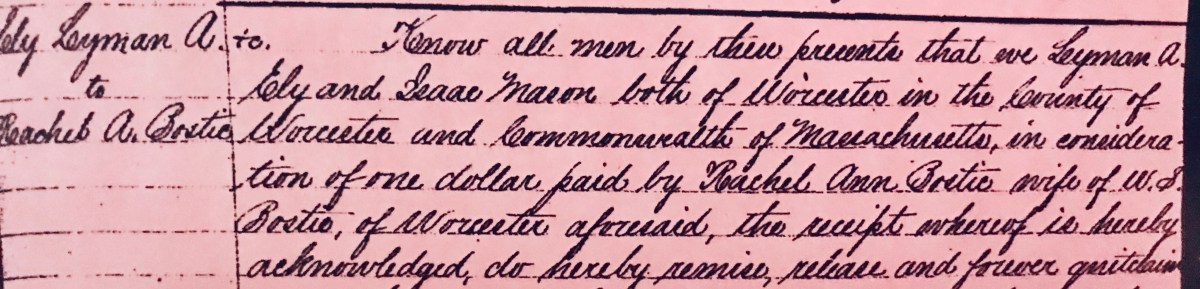 Ely Lyman A. &c.
to
Rachel A. Bostic
Know all men by these presents that we Lyman A.
Ely and Isaac Mason both of Worcester in the County of
Worcester and Commonwealth of Massachusetts, in considera-
tion of one dollar paid by Rachel Ann Bostic wife of W. S.
Bostic, of Worcester aforesaid, the receipt whereof is hereby
acknowledged, do hereby remise, release and forever quitclaim